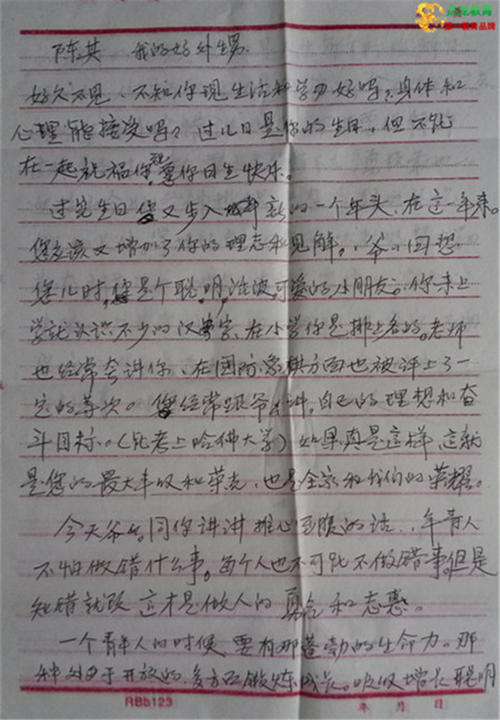 陈其 我的好外甥
好久不见、不知你现生活和学习好吗？身体和
心理能接受吗？过几日是你的生日，但不能
在一起祝福你，祝愿你日生快乐。
过完生日您又步入新的一个年头、在这一年来。
您应该又增加了你的理志和见解。爷回想
您儿时，您是个聪明活波，可爱的小朋友。你未上
学就认识不少的汉字、在小学你是排上名的。老师
也经常夸讲你、在国际象棋方面也被评上了一
定的等次。您经常跟爷讲，自己的理想和奋
斗目标。（能考上哈佛大学）如果真是这样、这就
是您的最大丰收和荣光，也是全家和我们的荣耀。
今天爷同你讲讲推心至腹的话、年青人
不怕做错什么事。每个人也不可能不做错事。但是
知错就改 这才是做人的真
一个青年人的时候、要有那蓬勃的生命力。那
开放的、多方面锻炼成长。吸收增长聪明
RBb123
年 月 日